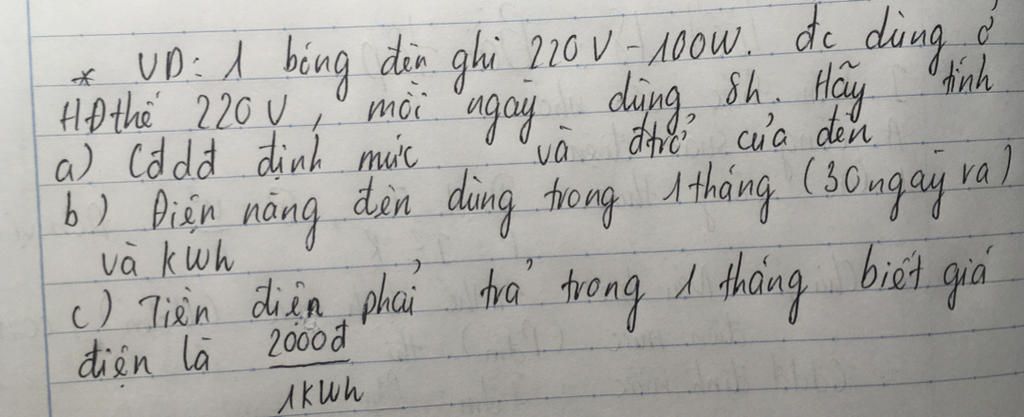 * VD: 1 bóng đèn ghi 220V - 100W. đc dùng ở
HĐthế 220V, mỗi ngày dùng 8h. Hãy tính
a) Cđdđ định mức và đtrở của đèn
b) Điện năng đèn dùng trong 1 tháng (30 ngày ra)
và kWh
c) Tiền điện phải trả trong 1 tháng biết giá
điện là 2000đ
1kWh